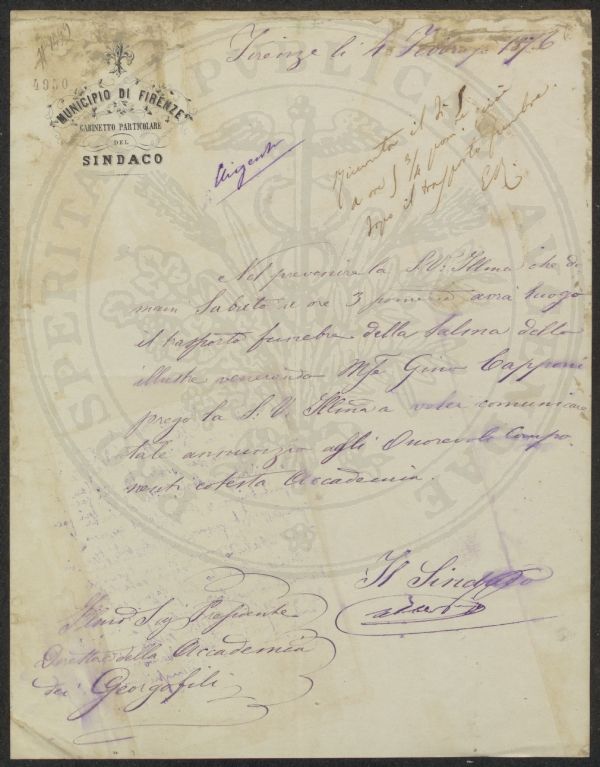 4950
MUNICIPIO DI FIRENZE
GABINETTO PARTICOLARE
DEL
SINDACO
Firenze li 4 Febbrajo 1876
Urgente
Ricevuta il dì 5
a ore 3 3/4 pom.
dopo il trasporto funebre.
Nel prevenire la S. V. Illma che do
mani Sabato a ore 3 pomerid avrà luogo
il trasporto funebre della Salma dello
illustre venerando Mse Gino Capponi
prego la S. V. Illma a voler comunicare
tale annunzio agli Onorevoli Compo
nenti cotesta Accademia.
Il Sindaco
Illmo Sig Presidente
della Accademia
dei Georgofili
PROSPERITATI PUBLICAE AUGENDAE